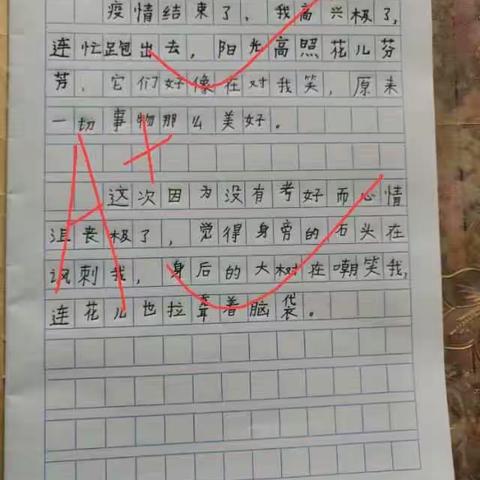 疫情结束了,我高兴极了,
连忙跑出去,阳光高照花儿芬
芳,它们好像在对我笑,原来
一切事物那么美好。
这次因为没有考好而心情
沮丧极了,觉得身旁的石头在
讽刺我,身后的大树在嘲笑我,
连花儿也拉耷着脑袋。
A+